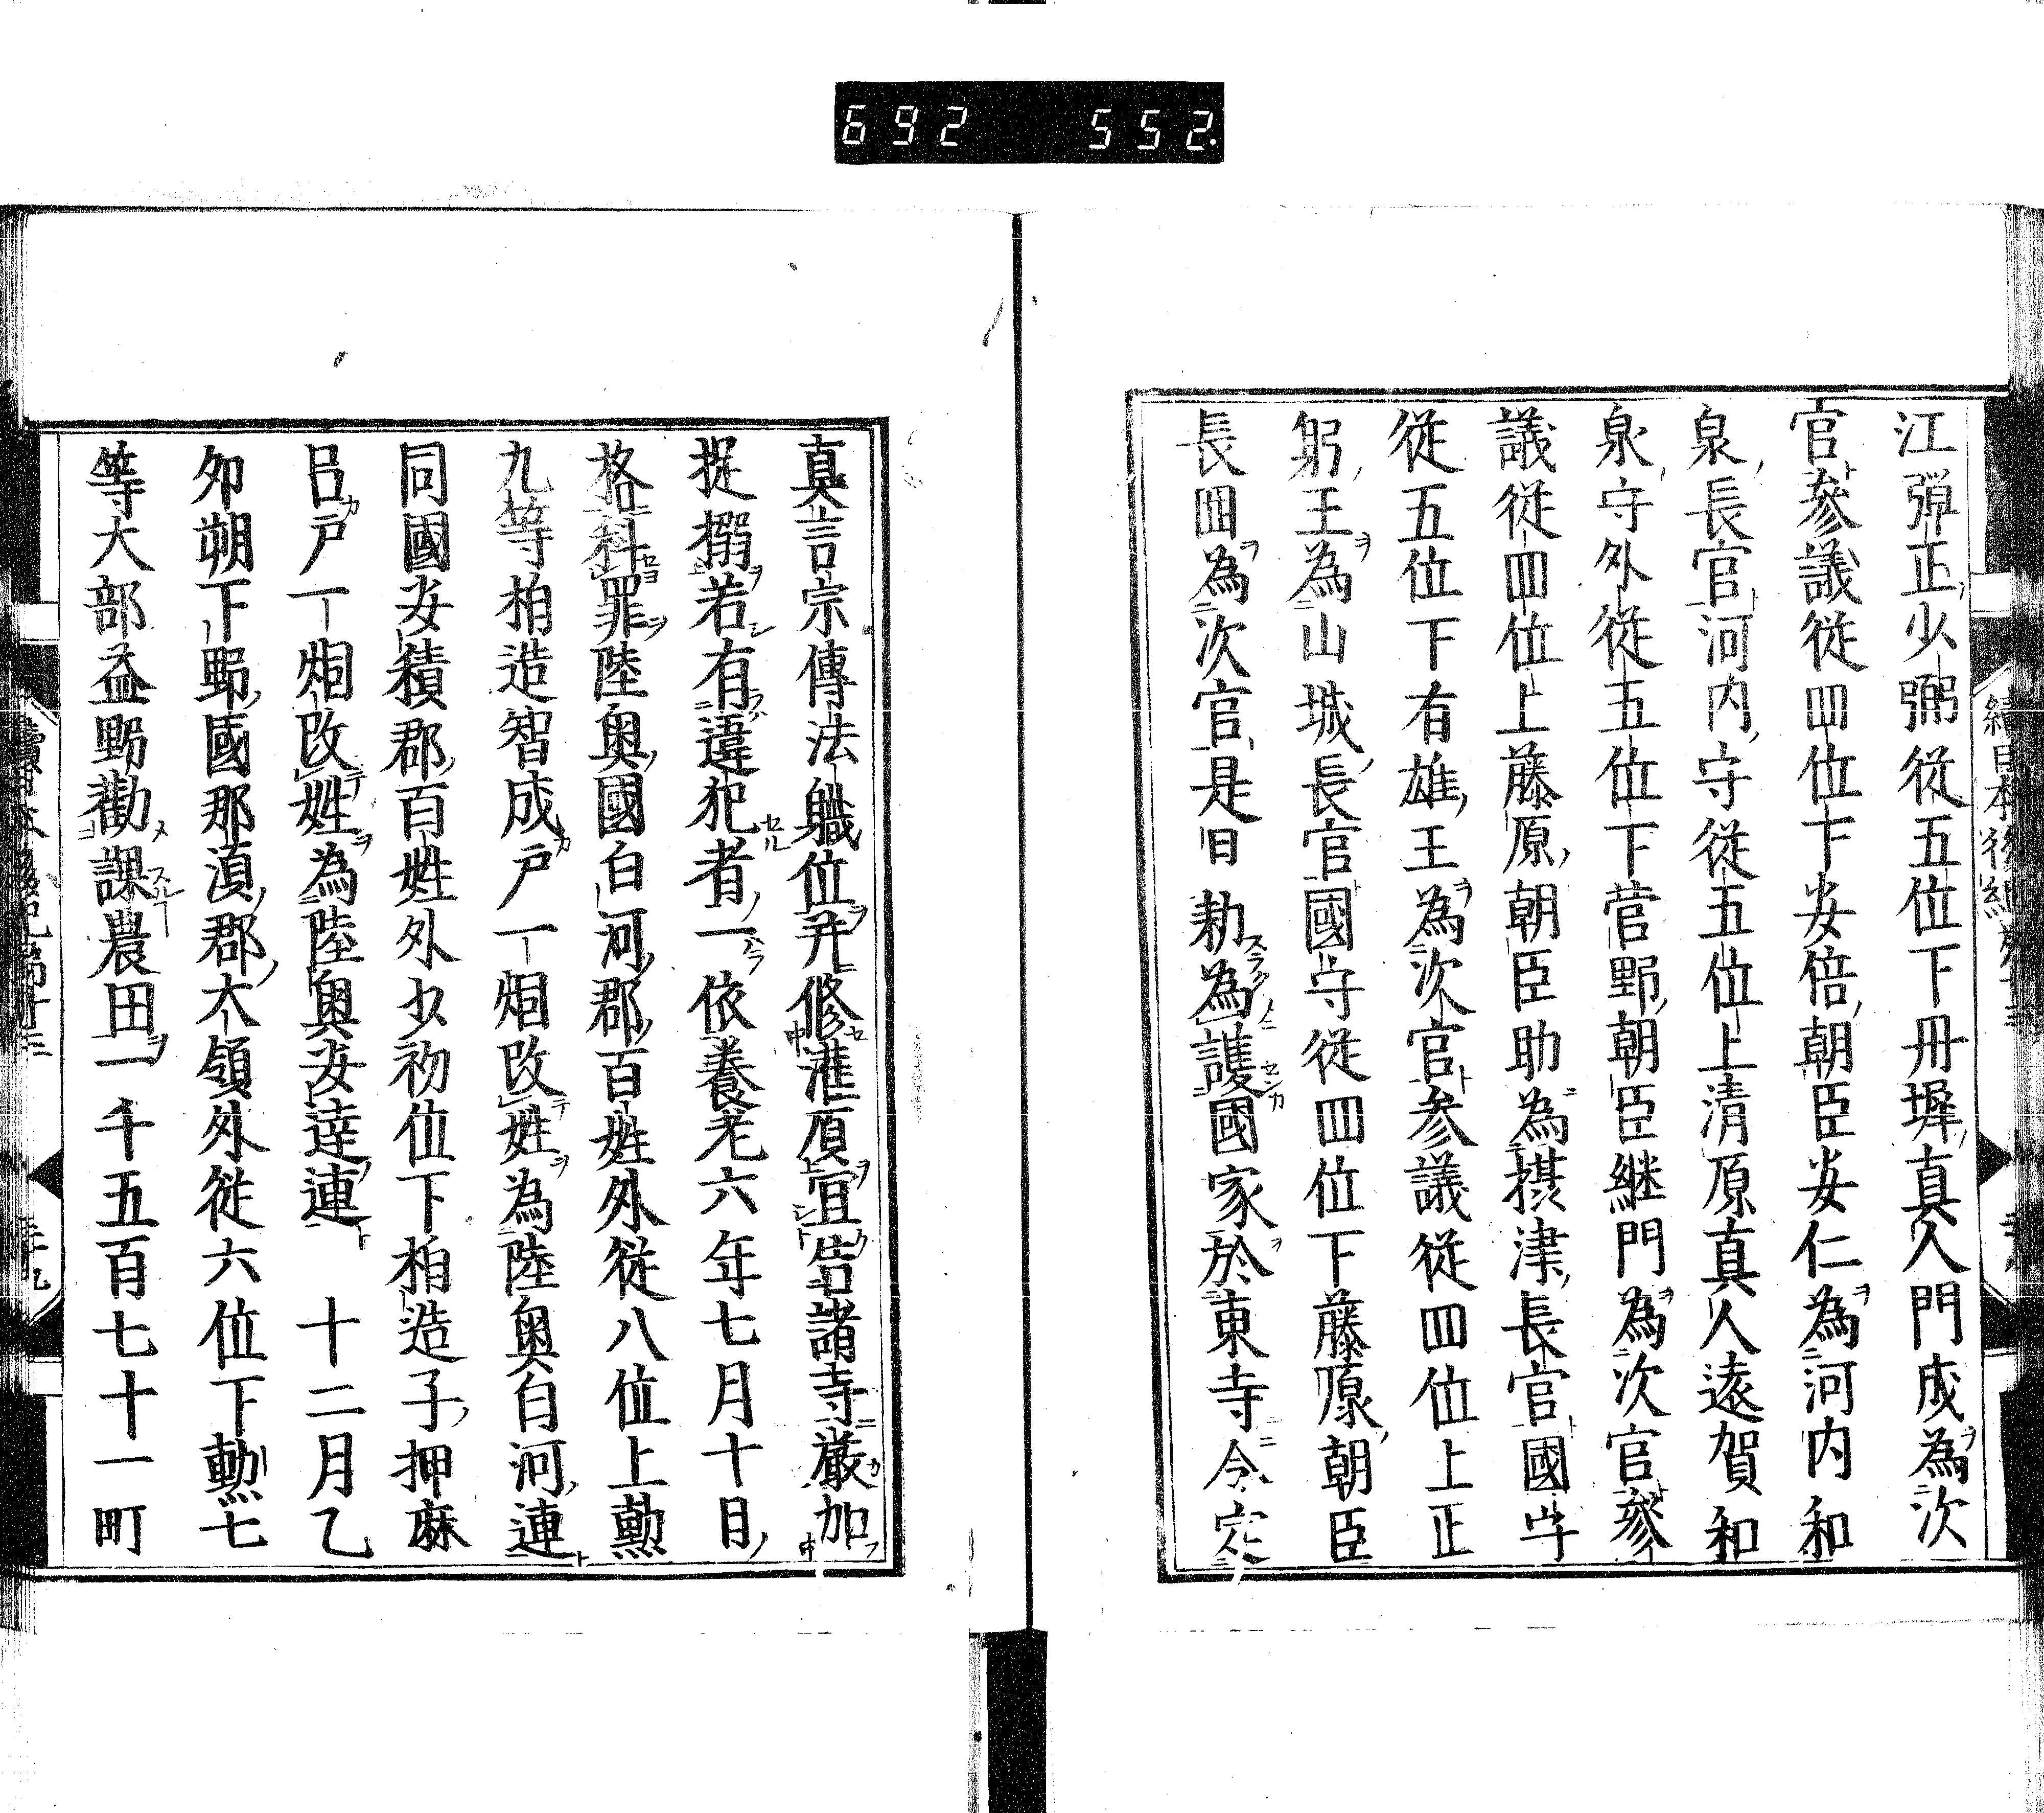 692 552.
江彈正少弼從五位下丹墀真人門成為次
官參議從四位下安倍朝臣安仁為河內和
泉長官河内守從五位上清原真人遠賀和
泉守外從五位下菅野朝臣継門為次官參
議從四位上藤原朝臣助為摂津長官國守
從五位下有雄王為次官参議從四位上正
躬王為山城長官國守從四位下藤原朝臣
長岡為次官是日勅為護國家於東寺令定
真言宗傳法職位并修灌頂宜告諸寺嚴加
捉搦若有違犯者一依養老六年七月十日
格科罪陸奥國白河郡百姓外從八位上勲
九等狛造智成戸一烟改姓為陸奥白河連
同國安積郡百姓外少初位下狛造子押麻
呂戸一烟改姓為陸奥安達連 十二月乙
夘朔下野國那湏郡大領外從六位下勲七
等大部益野勸課農田一千五百七十一町